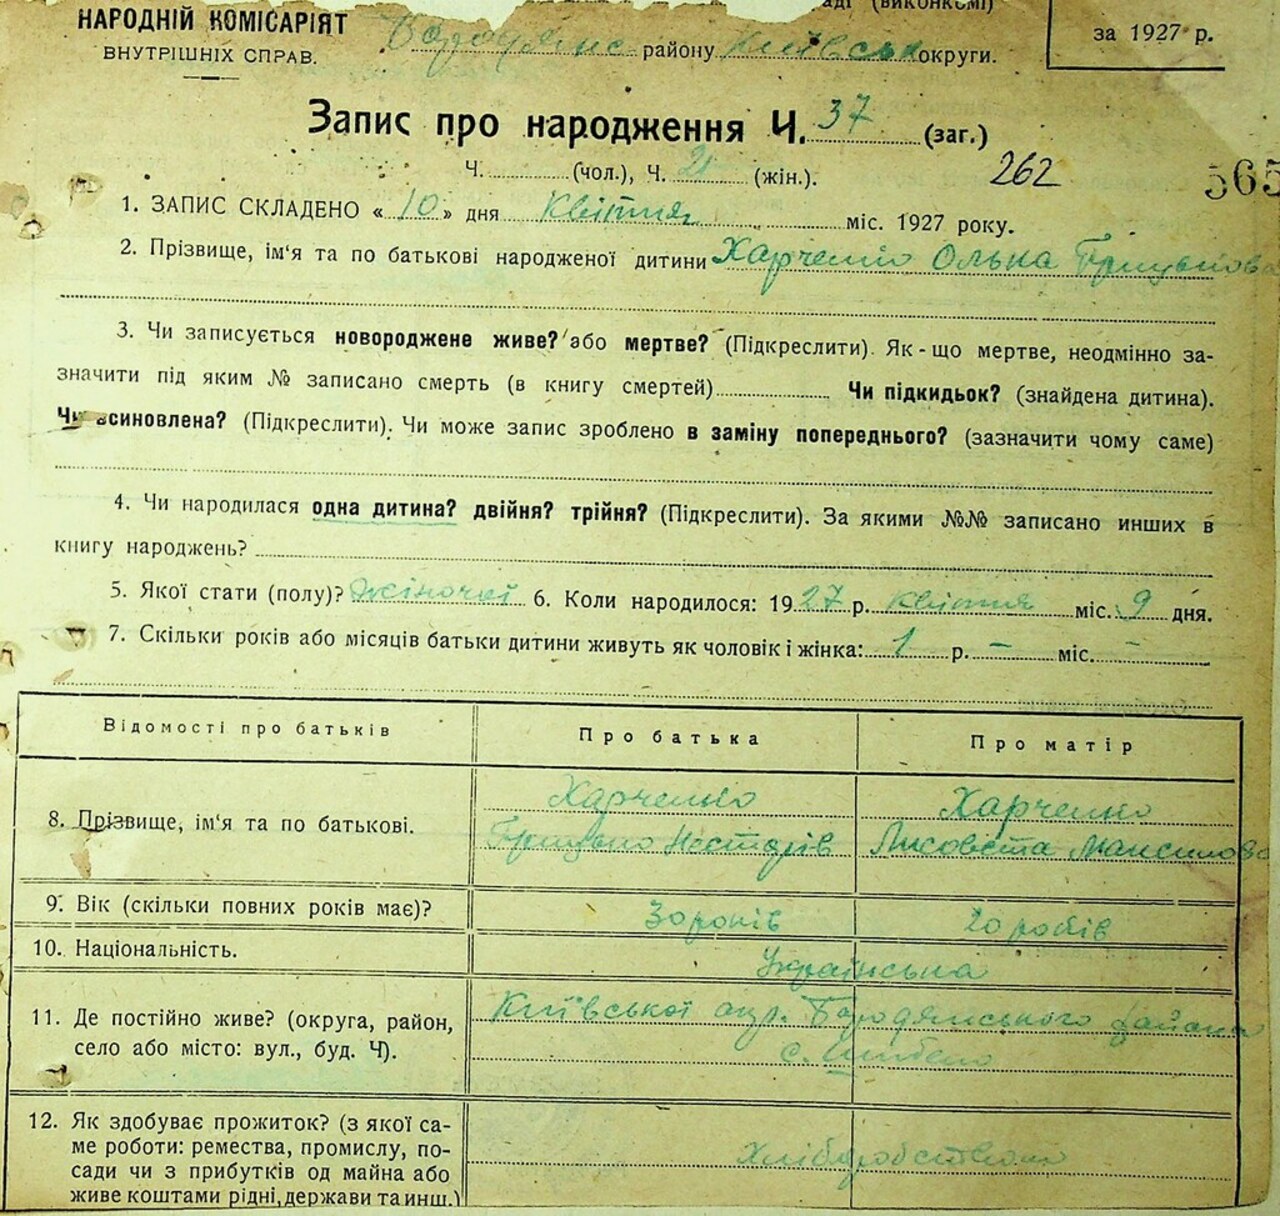 аді (виконкомі)
НАРОДНІЙ КОМІСАРІЯТ
ВНУТРІШНІХ СПРАВ.
Бородянс району Київськ округи.
за 1927 р.
Запис про народження Ч. 37 (заг.)
Ч. (чол.), Ч. 21 (жін.).
262
565
1. ЗАПИС СКЛАДЕНО « 10 » дня Квітня міс. 1927 року.
2. Прізвище, ім'я та по батькові народженої дитини Харченко Олька Грицькова
3. Чи записується новороджене живе? або мертве? (Підкреслити). Як-що мертве, неодмінно за-
значити під яким № записано смерть (в книгу смертей) Чи підкидьок? (знайдена дитина).
Чи всиновлена? (Підкреслити). Чи може запис зроблено в заміну попереднього? (зазначити чому саме)
4. Чи народилася одна дитина? двійня? трійня? (Підкреслити). За якими №№ записано инших в
книгу народжень?
5. Якої стати (полу)? жіночої 6. Коли народилося: 1927 р. квітня міс. 9 дня.
7. Скільки років або місяців батьки дитини живуть як чоловік і жінка: 1 р. – міс. –
Відомості про батьків Про батька Про матір
8. Прізвище, ім'я та по батькові.
Харченко Харченко
Грицько Нестерів Лисовета Максимова
9. Вік (скільки повних років має)? 30 років 20 років
10. Національність. Українська
11. Де постійно живе? (округа, район,
село або місто: вул., буд. Ч).
Київської окр. Бородянського района
с.
12. Як здобуває прожиток? (з якої са-
ме роботи: ремества, промислу, по-
сади чи з прибутків од майна або
живе коштами рідні, держави та инш.)
Хліборобством